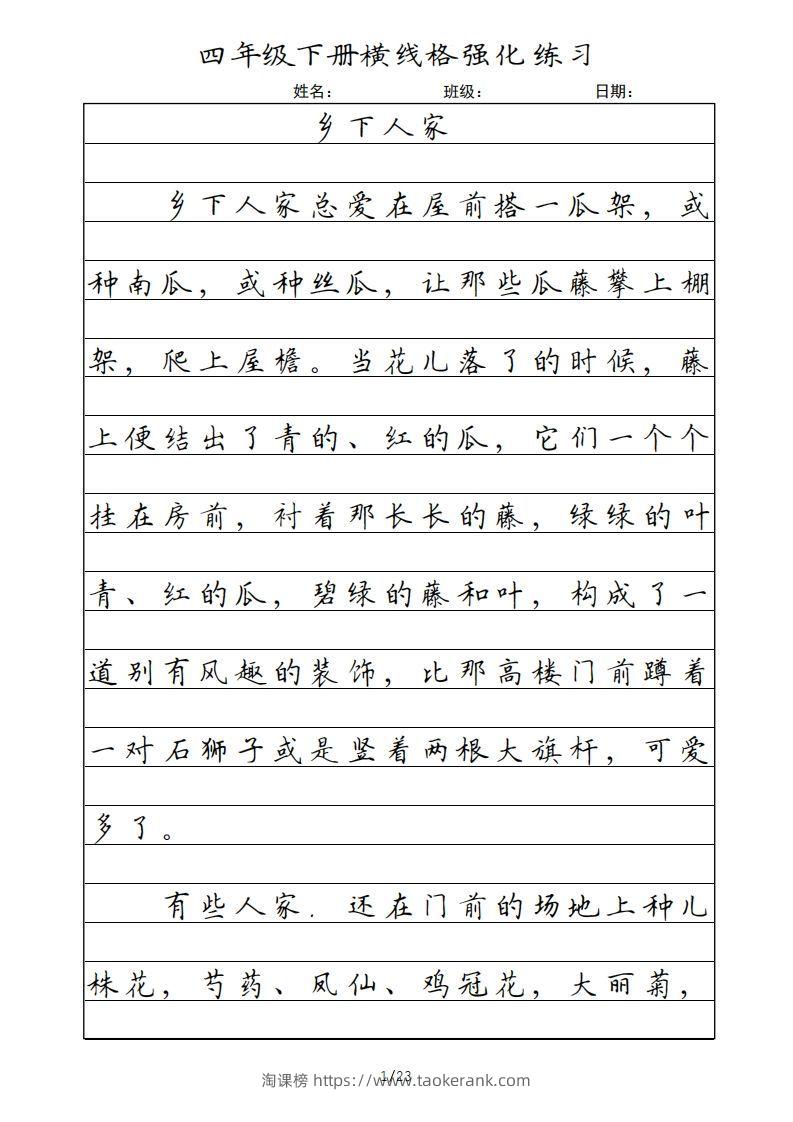 四年级下册横线格强化练习
姓名： 班级： 日期：
乡下人家
乡下人家总爱在屋前搭一瓜架，或
种南瓜，或种丝瓜，让那些瓜藤攀上棚
架，爬上屋檐。当花儿落了的时候，藤
上便结出了青的、红的瓜，它们一个个
挂在房前，衬着那长长的藤，绿绿的叶
青、红的瓜，碧绿的藤和叶，构成了一
道别有风趣的装饰，比那高楼门前蹲着
一对石狮子或是竖着两根大旗杆，可爱
多了。
有些人家．还在门前的场地上种儿
株花，芍药、凤仙、鸡冠花，大丽菊，
1/23
淘课榜 https://www.taokerank.com